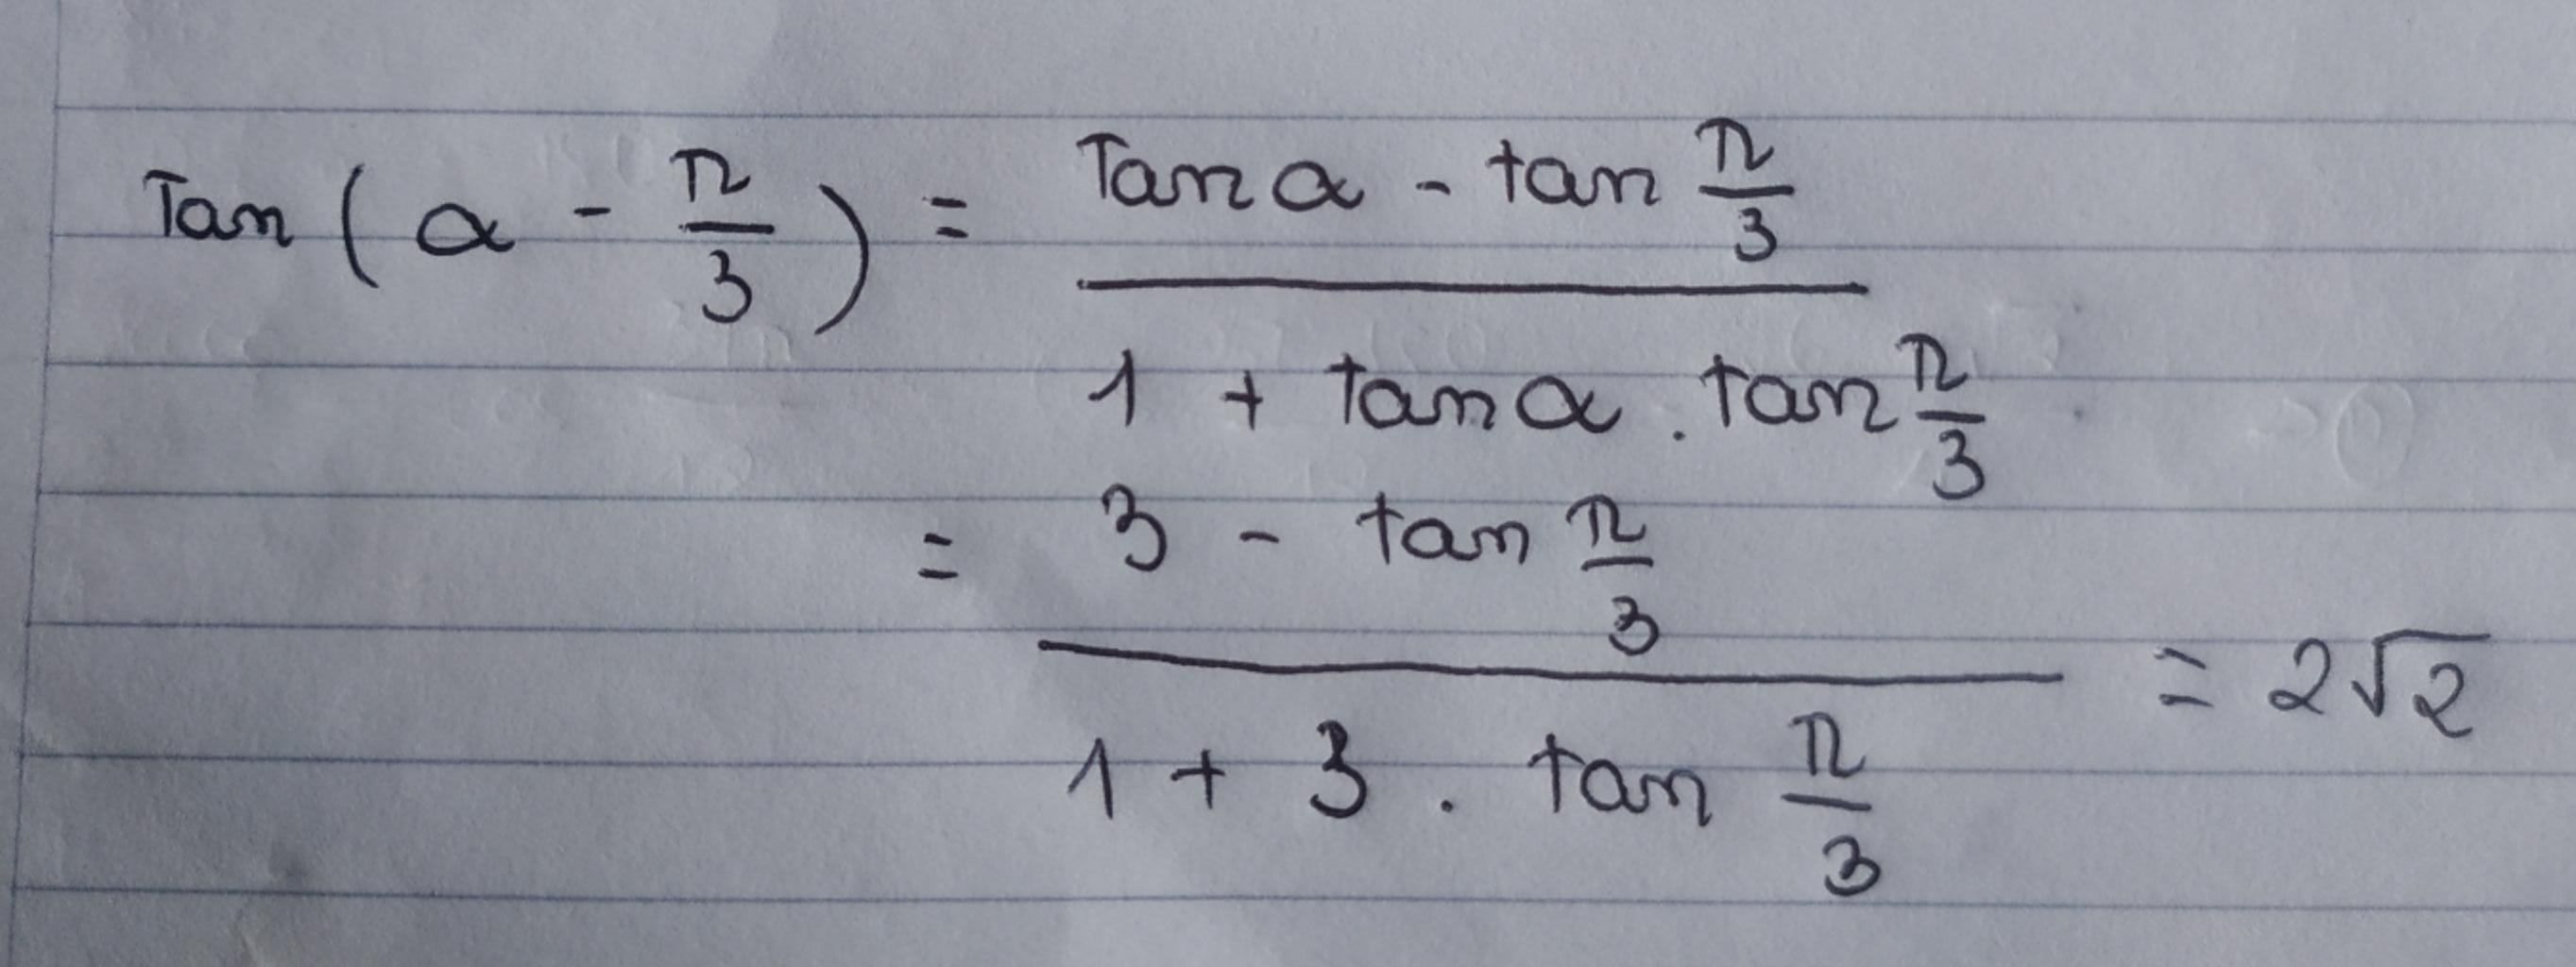 Tan ( α - π/3 ) = Tan α - tan π/3 / 1 + tan α . tan π/3
= 3 - tan π/3 / 1 + 3 . tan π/3 = 2√2